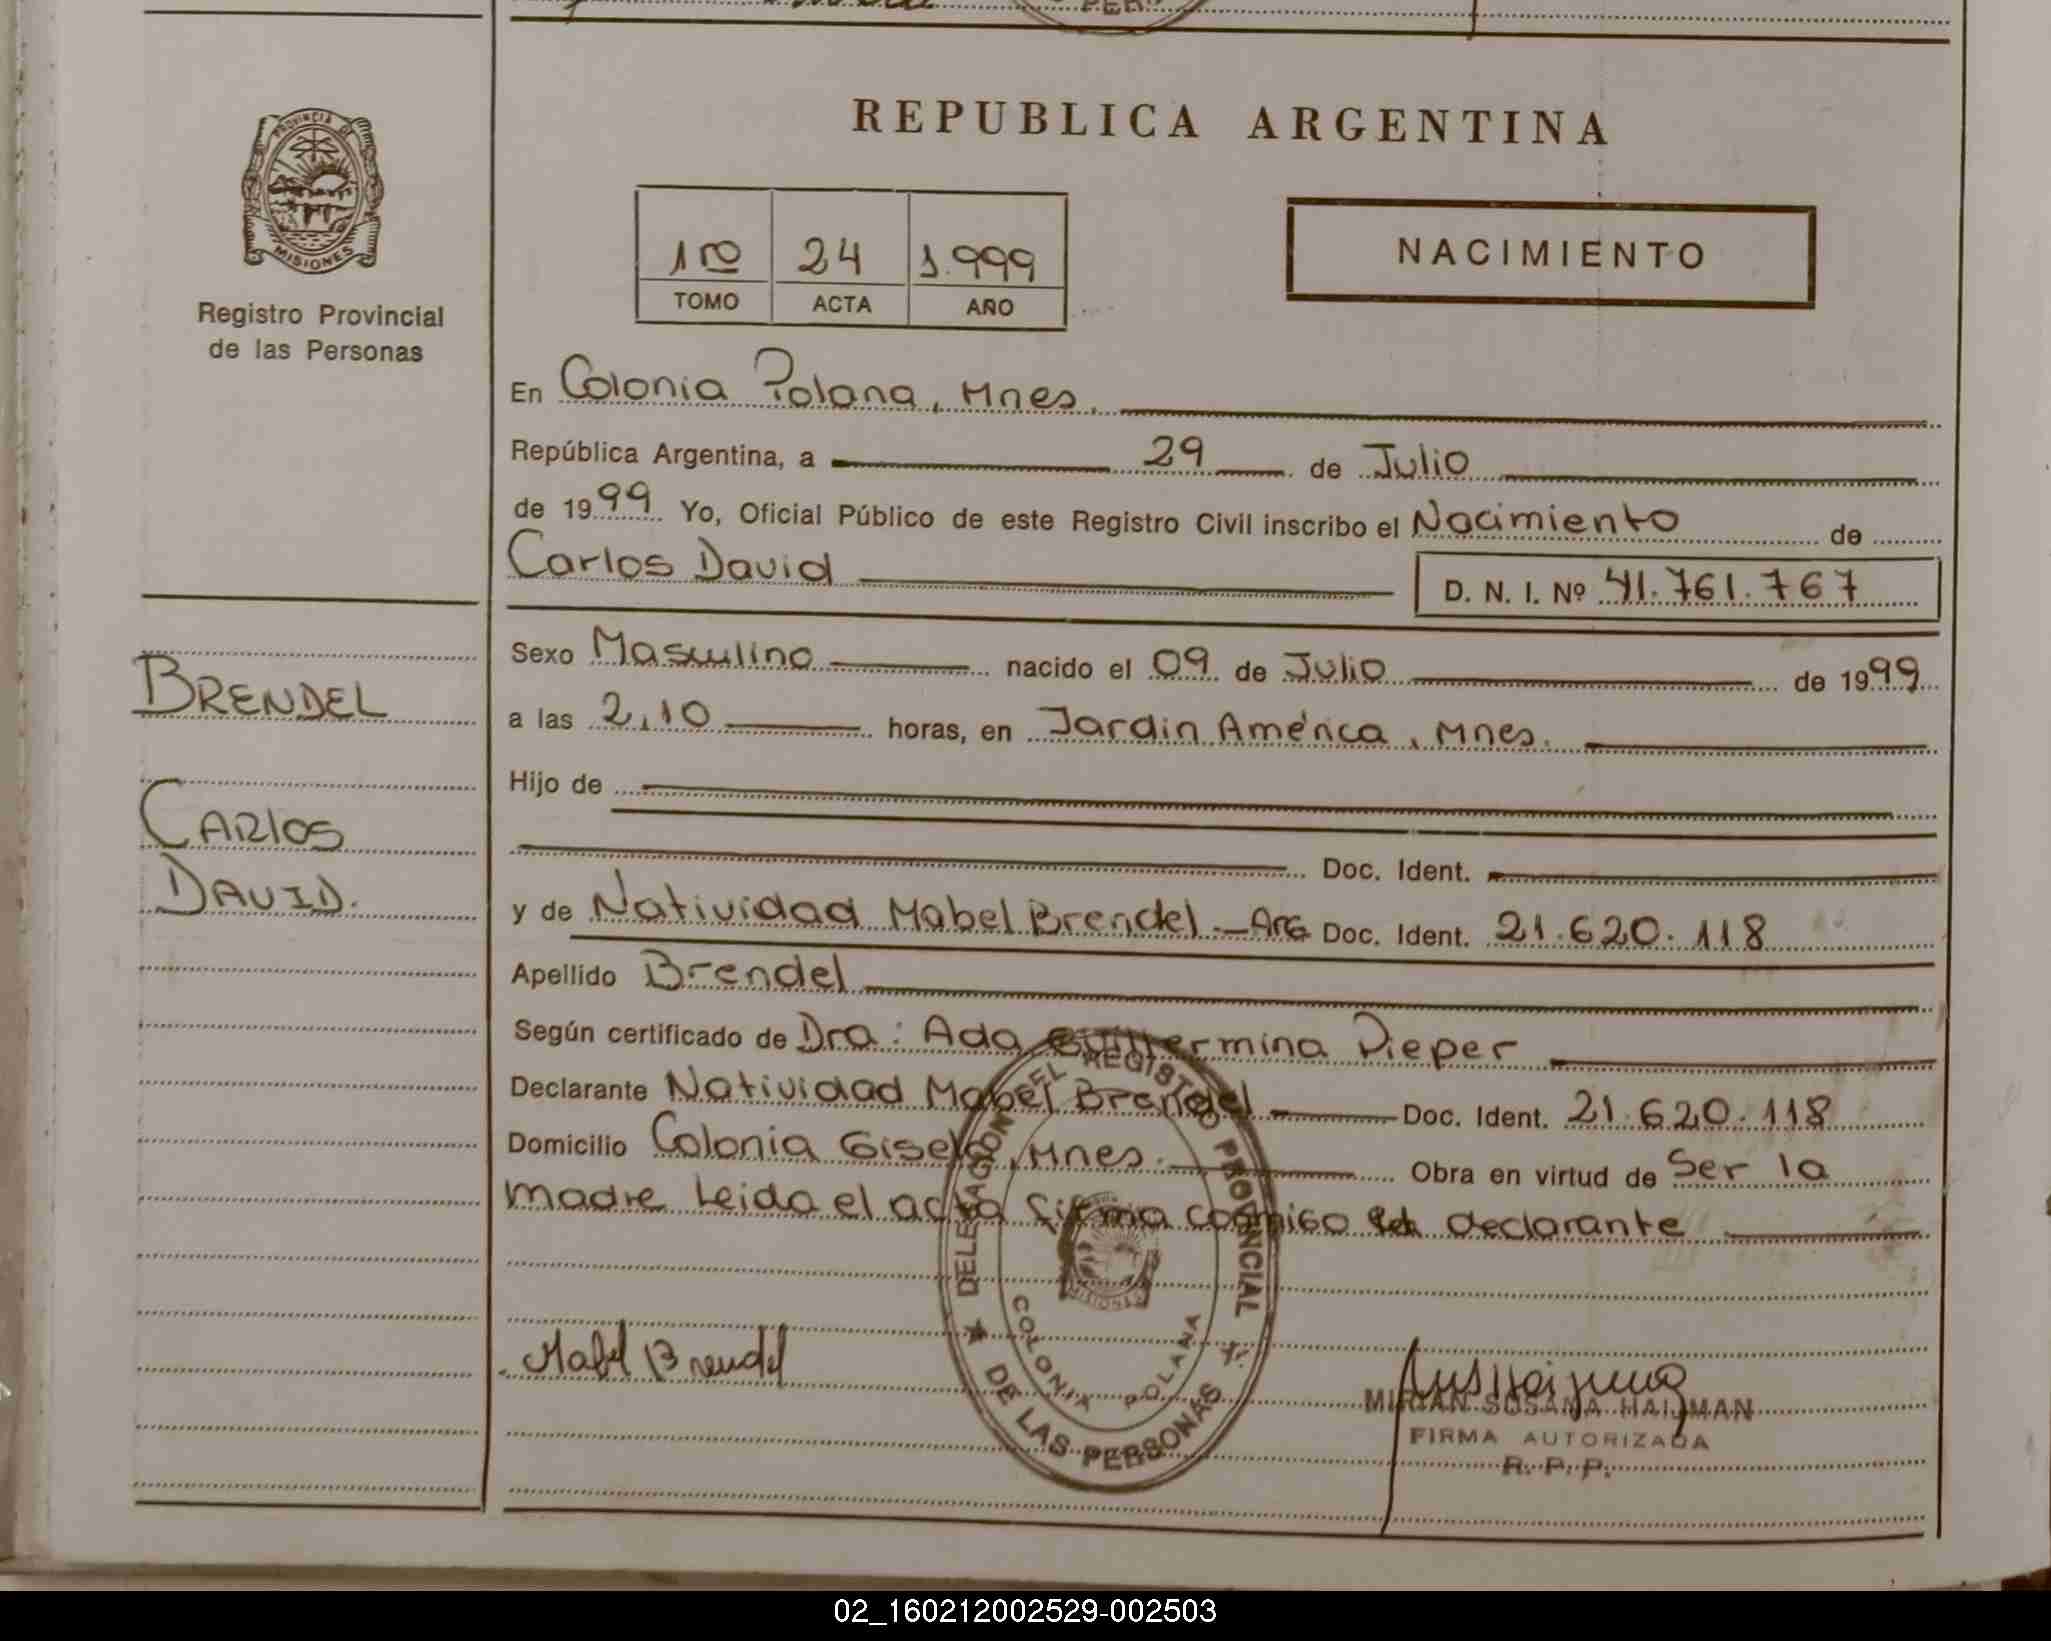 PROVINCIA DE
MISIONES
Registro Provincial
de las Personas
BRENDEL
CARLOS
DAVID.
REPUBLICA ARGENTINA
1ro 24 1.999
TOMO ACTA AÑO
NACIMIENTO
En Colonia Polana, Mnes.
República Argentina, a 29 de Julio
de 1999 Yo, Oficial Público de este Registro Civil inscribo el Nacimiento de
Carlos David D. N. I. Nº 41.761.767
Sexo Masculino nacido el 09 de Julio de 1999
a las 2,10 horas, en Jardin América, Mnes.
Hijo de
Doc. Ident.
y de Natividad Mabel Brendel - Arg Doc. Ident. 21.620.118
Apellido Brendel
Según certificado de Dra: Ada Guillermina Pieper
Declarante Natividad Mabel Brendel Doc. Ident. 21.620.118
Domicilio Colonia Gisela, Mnes. Obra en virtud de Ser la
madre Leida el acta firma conmigo la declarante
DELEGACION DEL REGISTO PROVINCIAL
DE LAS PERSONAS
COLONIA POLANA
MISIONES
Mabel Brendel
MIRIAN SUSANA HAIJMAN
FIRMA AUTORIZADA
R. P. P.
02_160212002529-002503